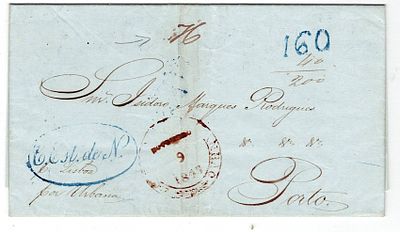 160
40
200
Snr. Isidoro Marques Rodrigues
Porto
C. Est. de N.
Lisboa
por Urbana
9
1843